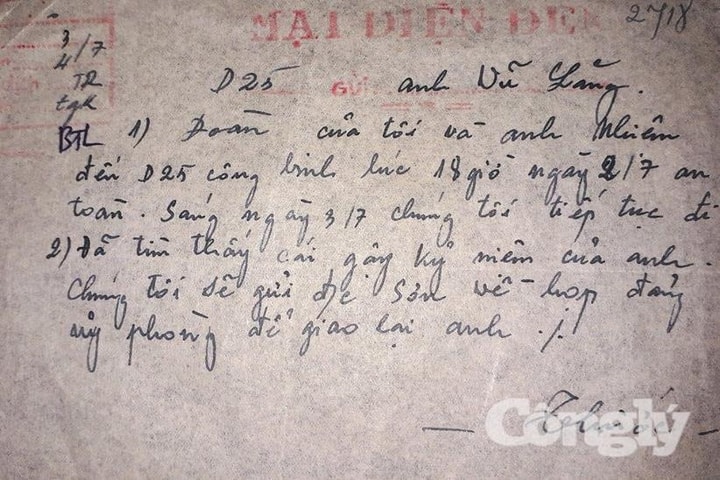 MẬT ĐIỆN ĐẾN
2718
3
4/7
TR
tgk
BTL
Gửi
D25 anh Vũ Lăng.
1) Đoàn của tôi và anh Nhiêm
đến D25 công binh lúc 18 giờ ngày 2/7 an
toàn. Sáng ngày 3/7 chúng tôi tiếp tục đi
2) Đã tìm thấy cái gậy kỷ niệm của anh.
Chúng tôi sẽ gửi đ/c Sơn về họp đảng
uỷ phòng để giao lại anh ./.
Công lý